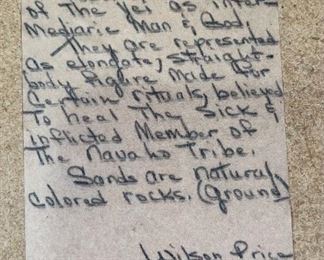 of The Yei as inter-
Mediarie Man & God,
They are represented
as elongate, straight-
body figure Made for
Certain rituals, believed
To heal The Sick &
inflicted Member of
The Navaho Tribe.
Sands are natural
colored rocks. (Ground)
Wilson Price